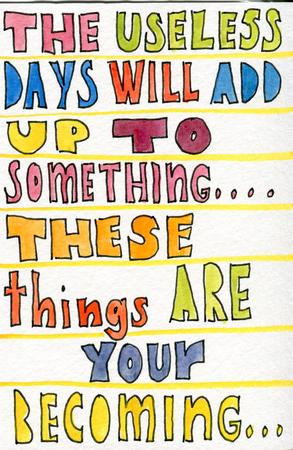 THE USELESS
DAYS WILL ADD
UP TO
SOMETHING....
THESE
things ARE
YOUR
BECOMING...